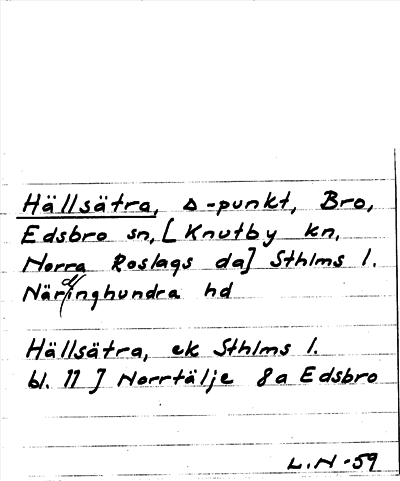 Hällsätra, Δ-punkt, Bro,
Edsbro sn, [Knutby kn,
Norra Roslags da] Sthlms l.
Närdinghundra hd
Hällsätra, ek Sthlms l.
bl. 11 J Norrtälje 8a Edsbro
L.N-59